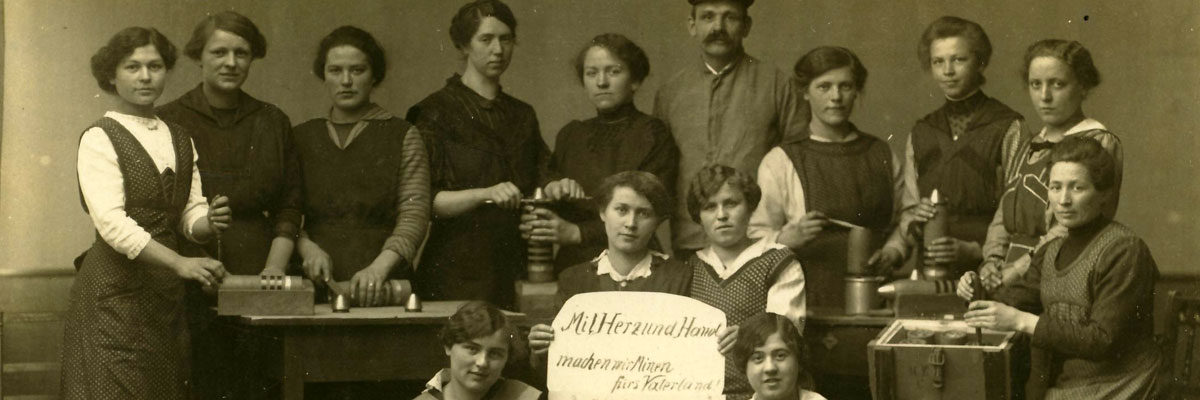 Mit Herz und Hand
machen wir Minen
fürs Vaterland!